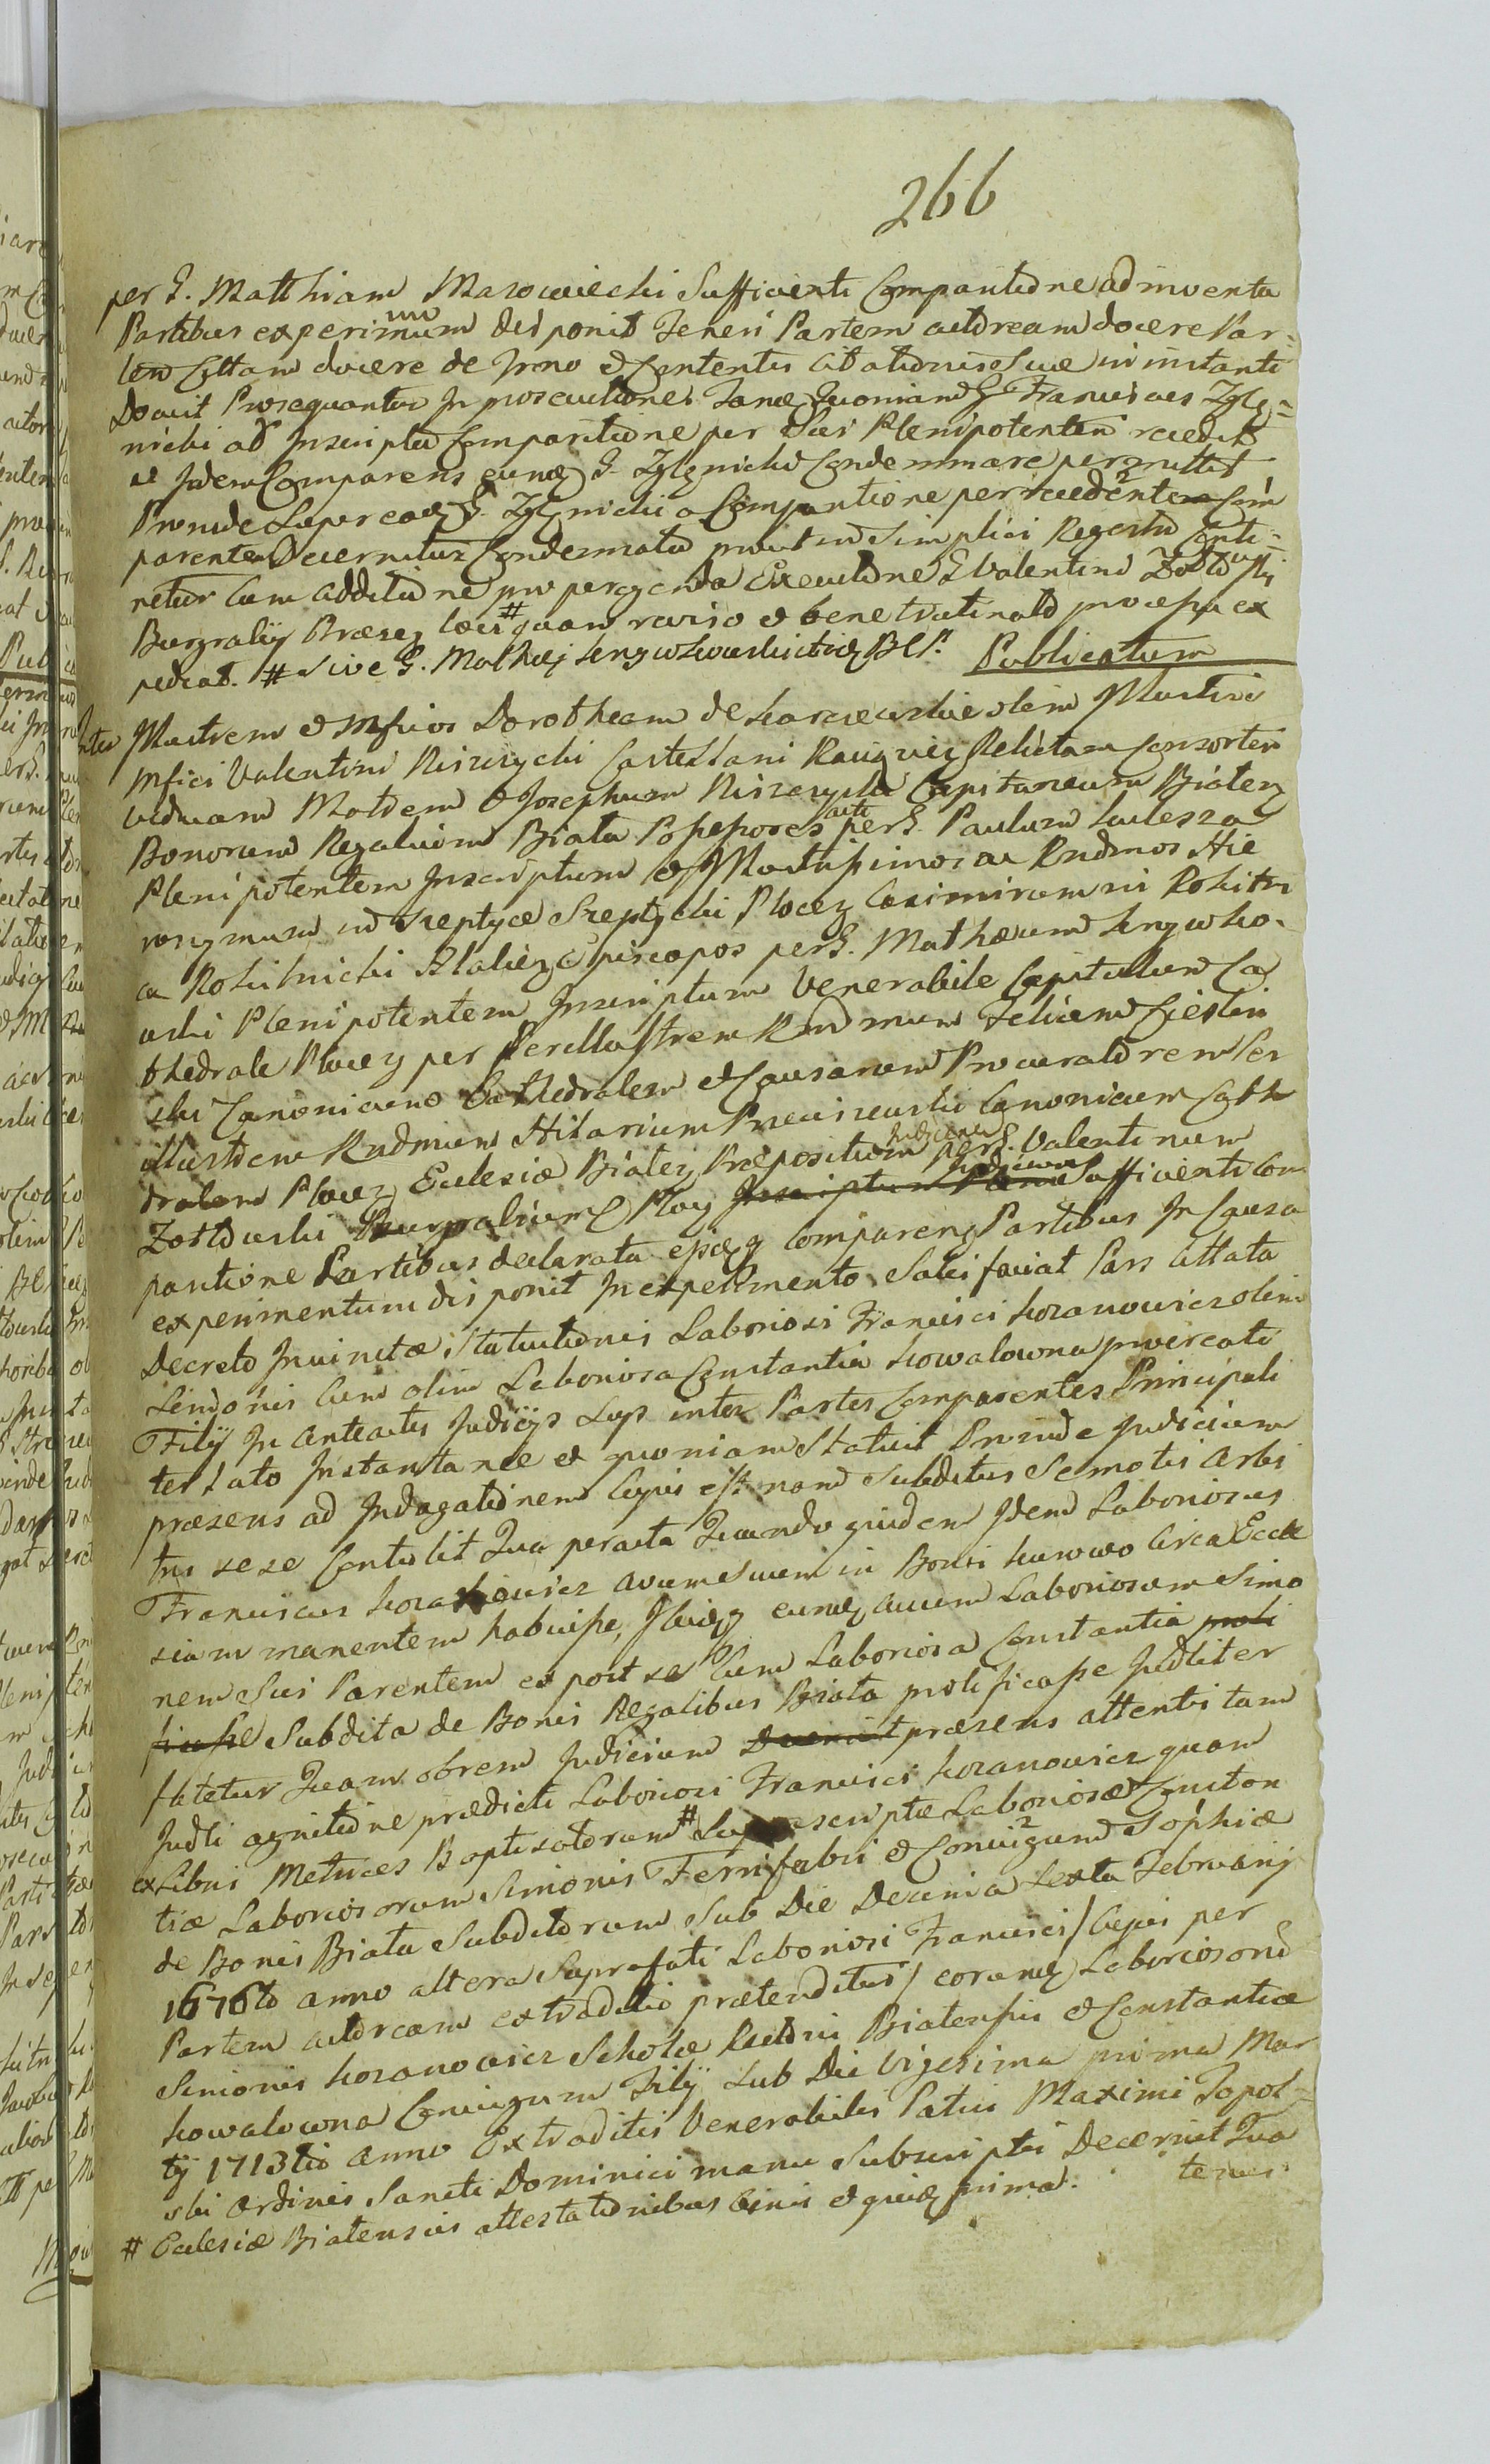 266
per G. Matthiam Mazowiecki Sufficienti Comparitione adinventa
Partibus experimentum disponit Teneri Partem actoream docere Par=
tem Cittam docere de Irono et Contentis Citationis Suæ in instanti
Docuit Prosequantur In prosecutione Janæ Quoniam G Franciscus Zglę=
nicki ab Inscripta Comparitione per Sui Plenipotentem recedit
et Idem Comparens eunq G. Zglęnicki Condemnare permittit
Proinde Super eoq G. Zglęnicki a Comparitione per recedentem Com
parentem Decernitur Condemnata prout in Simplici Regestro Conti=
netur Cum additione pro peragenda Executione G Valentini Zołtowski
Burgrabij Præseq loci # quam reviso et bene trutinato processu ex
pediat. # Sive G. Mathæj Lengowski BCP. Publicatum
Inter Illustrem et Mficos Dorotheam de Karczewskie olim Illustris
Mfici Valentini Kiszycki Castellani Raciąz Relictam Consortem
viduam Matrem et Josephum Kiszycki Capitaneum Białeq
Bonorum Regalium Biała Possessores acto per G. Paulum Kulesza
Plenipotentem Inscriptum et Illustrissimos ac Rndmos Hie
ronymum in Szeptyce Szeptycki Płoceq Casimirum in Rokitn
ca Rokitnicki Epicopos per G. Mathæum Lengowko.
wski Plenipotentem Inscriptum Venerabile Capitulum Ca
thedrale Płoceq per Perillustrem Rndmum Felicem Ciestin
ski Canonicum Cathedralem et Causarum Procuratorem Per
illustrem Rndmum Hilarium Canonicum Cath
dralem Płoceq Eclesiæ Białeq Præpositum Judicium per G. Valentinum
Zołtowski Burgrabium Płoq Inscriptum Judicium Sufficienti Com
paritione Partibus declarata ejsq Compareng Partibus In Causa
experimentum disponit In experimento Satisfaciat Pars Cittata
Decreto Juvinctæ Statutionis Laboriosi Francisci Kozanowicz olim
Simonis Cum olim Laboriosa Constantia Kowalowna procreati
Filij In anteactis Judicijs Sups inter Partes Comparentes Principali
ter Lato Instantanee et quoniam Statuit Proinde Judicium
præsens ad Indagationem Cujus est nam Subditus Semotis Arbi
tris sese Contulit Qua peracta Quando quidem Idem Laboriosus
Franciscus Kozanowicz avum Suum in Bonis Kunowo Circa Eccle
siam manentem habuisse, Ibiqq eunq avum Laboriosum Simo
nem Sui Parentem ex post se Cum Laboriosa Constantia proli
ficasse Subdita de Bonis Regalibus Biała prolificasse Judliter
fatetur Quam obrem Judicium Decernit præsens attenti tam
Judli agnitione prædicti Laboriosi Francisci Kozanowicz quam
ex Libris Metrices Baptisatorum # Suprascriptæ Laboriosæ Constan
tiæ Laboriosorum Simonis Ferrifabri et Conjugum Sophiæ
de Bonis Biała Subditorum Sub Die Decima Sexta Februarij
1676to anno altera Suprafati Laboriosi Francisci / Cujus per
Partem actoream extraditio prætenditur / eorunq Laboriosorum
Simonis Kozanowicz Scholæ Rectoris Białensis et Constantiæ
Kowalowna Conjugum Filij Sub Die Vigesima prima Mar
tij 1713tio anno Extraditis Venerabilis Patris Maximi Topol=
ski Ordinis Sancti Dominici manu Subscriptis Decernit Qua
tenus
# Eclesiæ Białensis attestationibus binis et quidq prima.